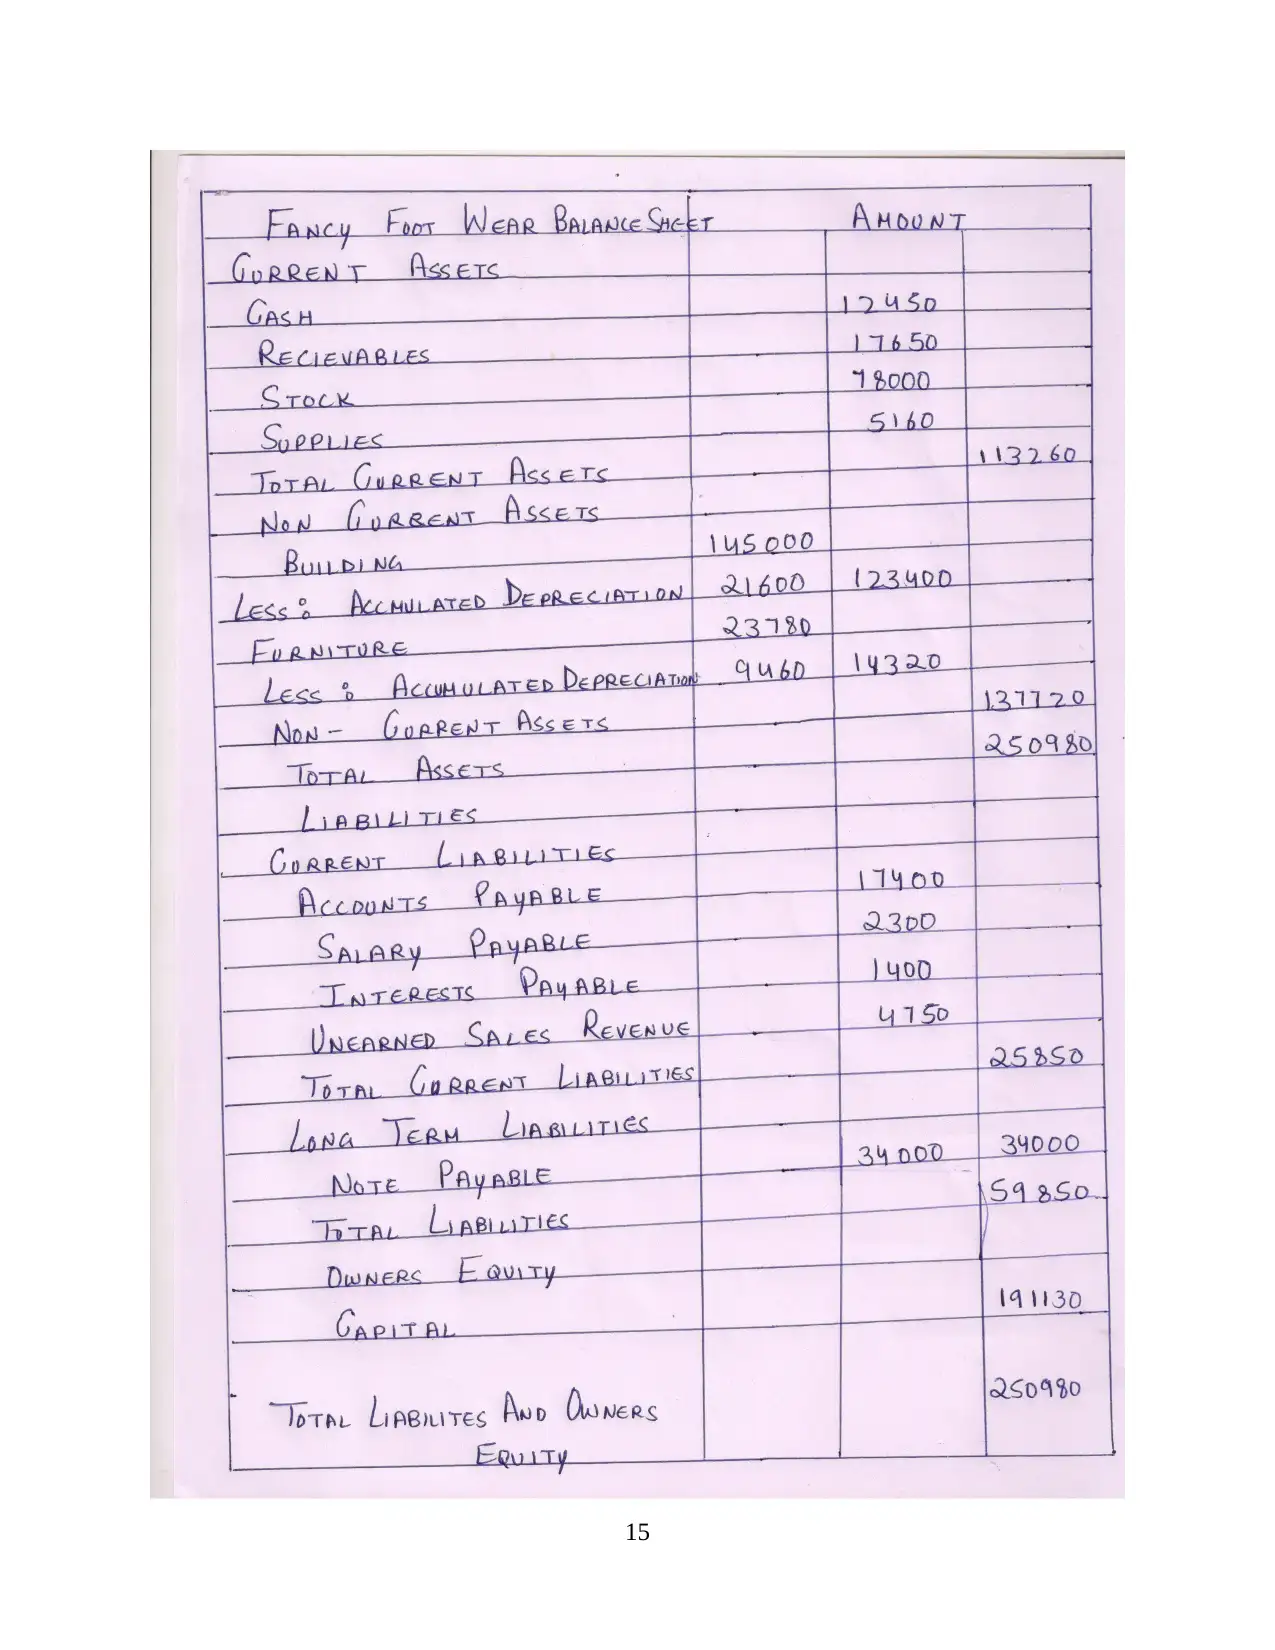 FANCY FOOT WEAR BALANCE SHEET AMOUNT
CURRENT ASSETS
CASH 12450
RECIEVABLES 17650
STOCK 78000
SUPPLIES 5160
TOTAL CURRENT ASSETS 113260
NON CURRENT ASSETS
BUILDING 145000
LESS: ACCMULATED DEPRECIATION 21600 123400
FURNITURE 23780
LESS: ACCUMULATED DEPRECIATION 9460 14320
NON- CURRENT ASSETS 137720
TOTAL ASSETS 250980
LIABILITIES
CURRENT LIABILITIES
ACCOUNTS PAYABLE 17400
SALARY PAYABLE 2300
INTERESTS PAYABLE 1400
UNEARNED SALES REVENUE 4750
TOTAL CURRENT LIABILITIES 25850
LONG TERM LIABILITIES
NOTE PAYABLE 34000 34000
TOTAL LIABILITIES 59850
OWNERS EQUITY
CAPITAL 191130
TOTAL LIABILITES AND OWNERS 250980
EQUITY
15